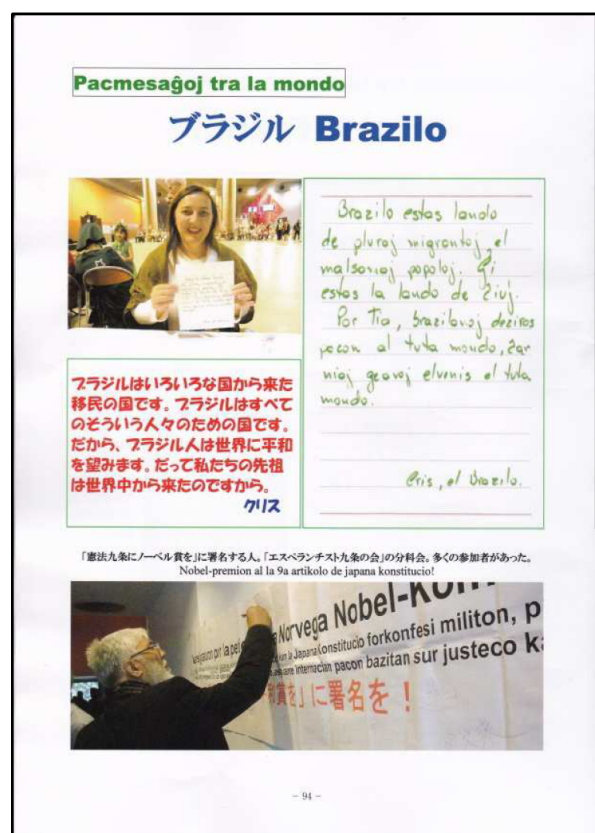 Pacmesaĝoj tra la mondo
ブラジル Brazilo
Brazilo estas lando
de pluraj migrantoj, el
malsamaj popoloj. Ĝi
estas la lando de ĉiuj.
Por tio, brazilanoj deziras
pacon al tuta mondo, ĉar
niaj geavoj elvenis el tuta
mondo.
Cris, el Brazilo.
ブラジルはいろいろな国から来た
移民の国です。ブラジルはすべて
のそういう人々のための国です。
だから、ブラジル人は世界に平和
を望みます。だって私たちの先祖
は世界中から来たのですから。
クリス
「憲法九条にノーベル賞を」に署名する人。「エスペランチスト九条の会」の分科会。多くの参加者があった。
Nobel-premion al la 9a artikolo de japana konstitucio!
por la Norvega Nobel-Kom
la Japana Konstitucio forkonfesi militon, p
internacian pacon bazitan sur justeco ka
賞を」に署名を!
- 94 -